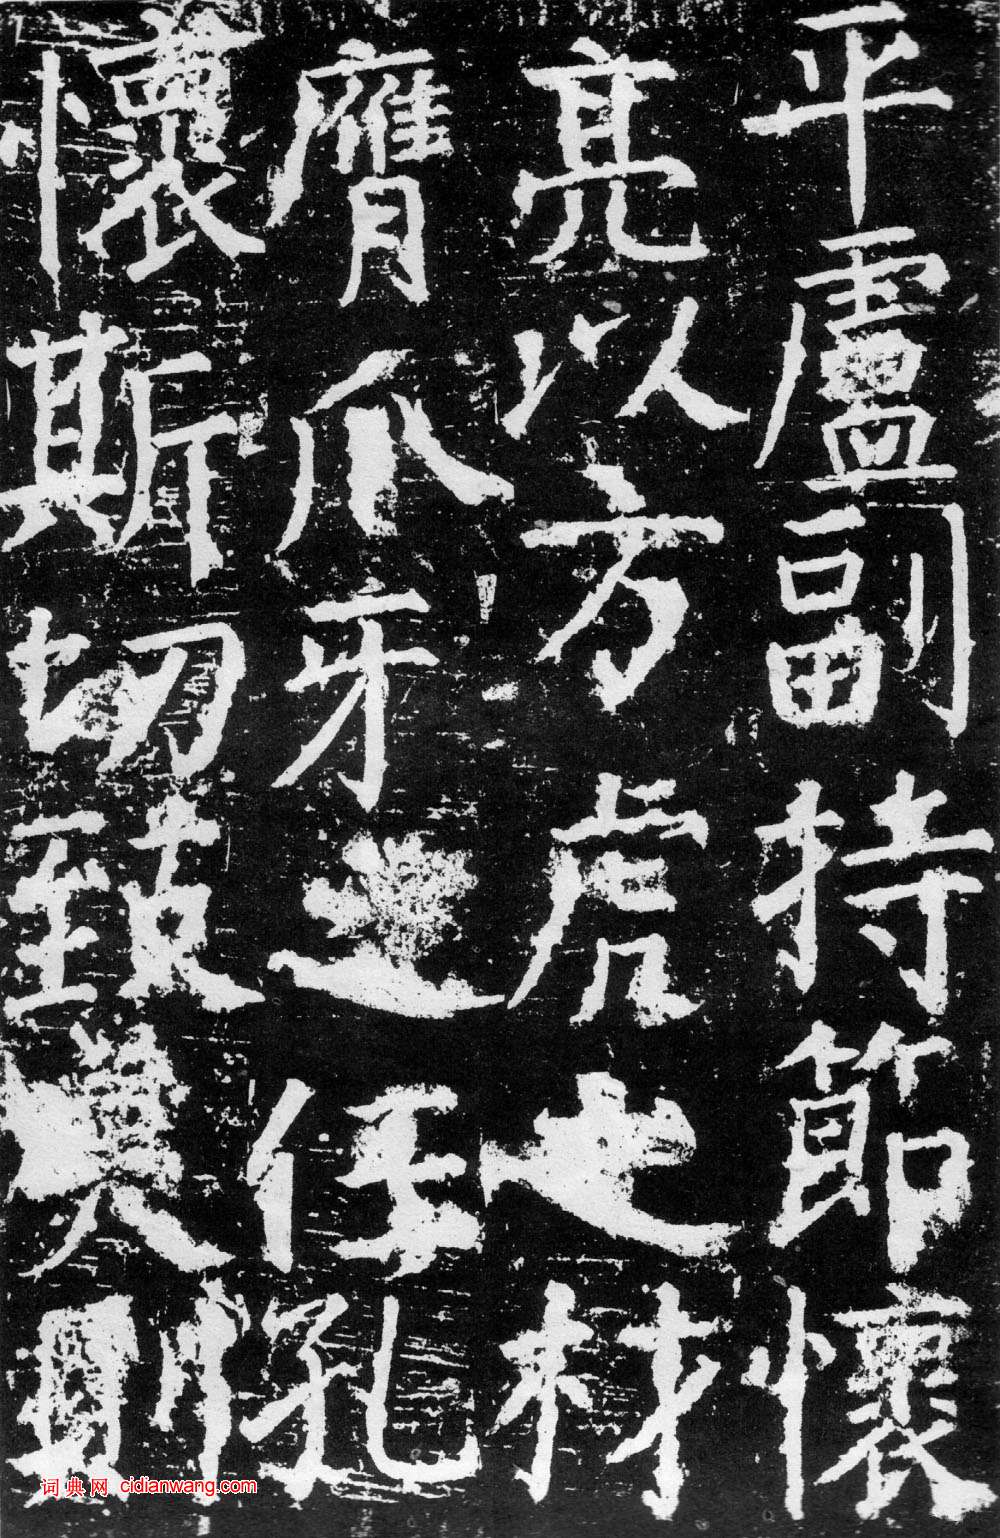 平盧副持節懷
亮以方虎之材
膺爪牙之任孔
懷斯切致美則
词典网 cidianwang.com